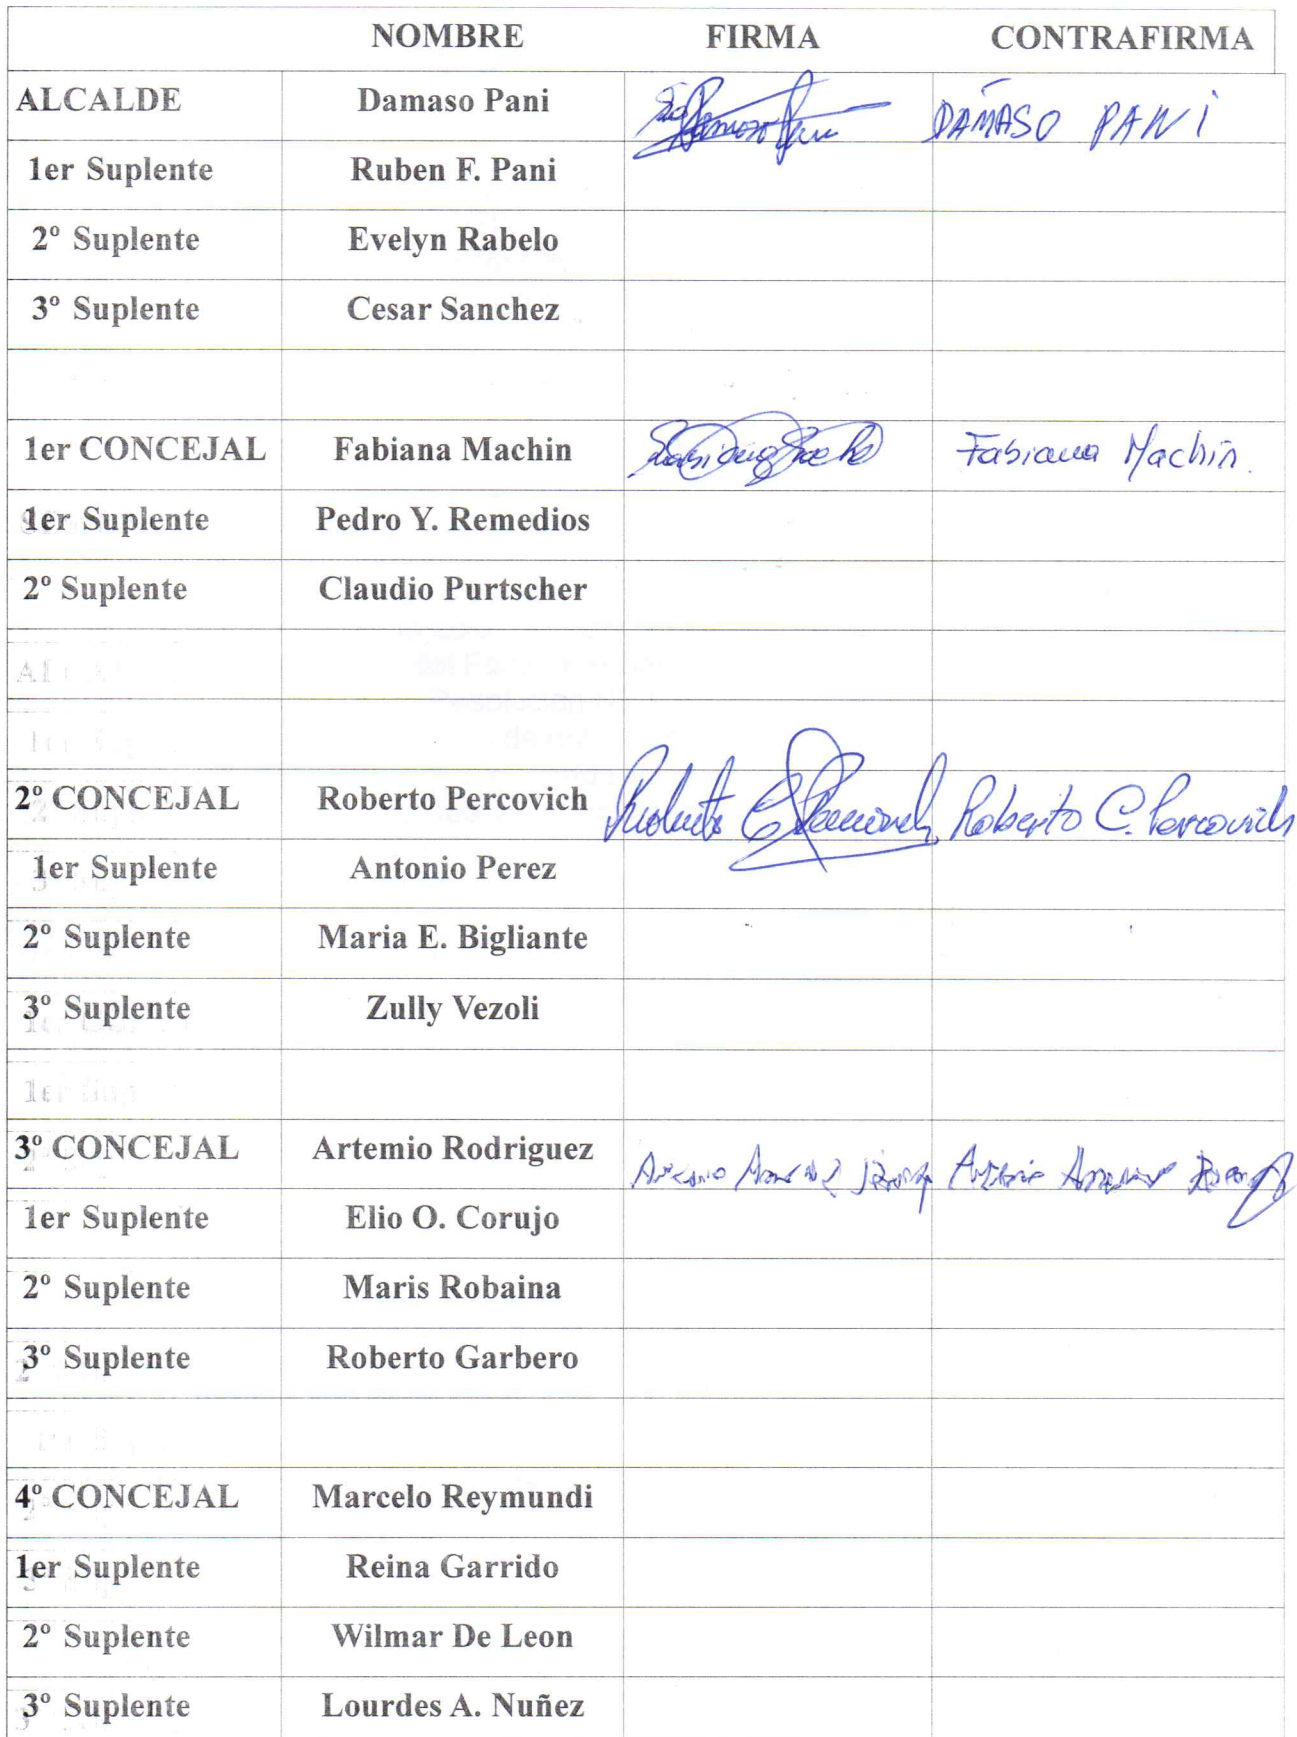 NOMBRE FIRMA CONTRAFIRMA
ALCALDE Damaso Pani DAMASO PANI
1er Suplente Ruben F. Pani
2º Suplente Evelyn Rabelo
3º Suplente Cesar Sanchez
1er CONCEJAL Fabiana Machin Fabiana Machin.
1er Suplente Pedro Y. Remedios
2º Suplente Claudio Purtscher
2º CONCEJAL Roberto Percovich Roberto C. Percovich
1er Suplente Antonio Perez
2º Suplente Maria E. Bigliante
3º Suplente Zully Vezoli
3º CONCEJAL Artemio Rodriguez
1er Suplente Elio O. Corujo
2º Suplente Maris Robaina
3º Suplente Roberto Garbero
4º CONCEJAL Marcelo Reymundi
1er Suplente Reina Garrido
2º Suplente Wilmar De Leon
3º Suplente Lourdes A. Nuñez